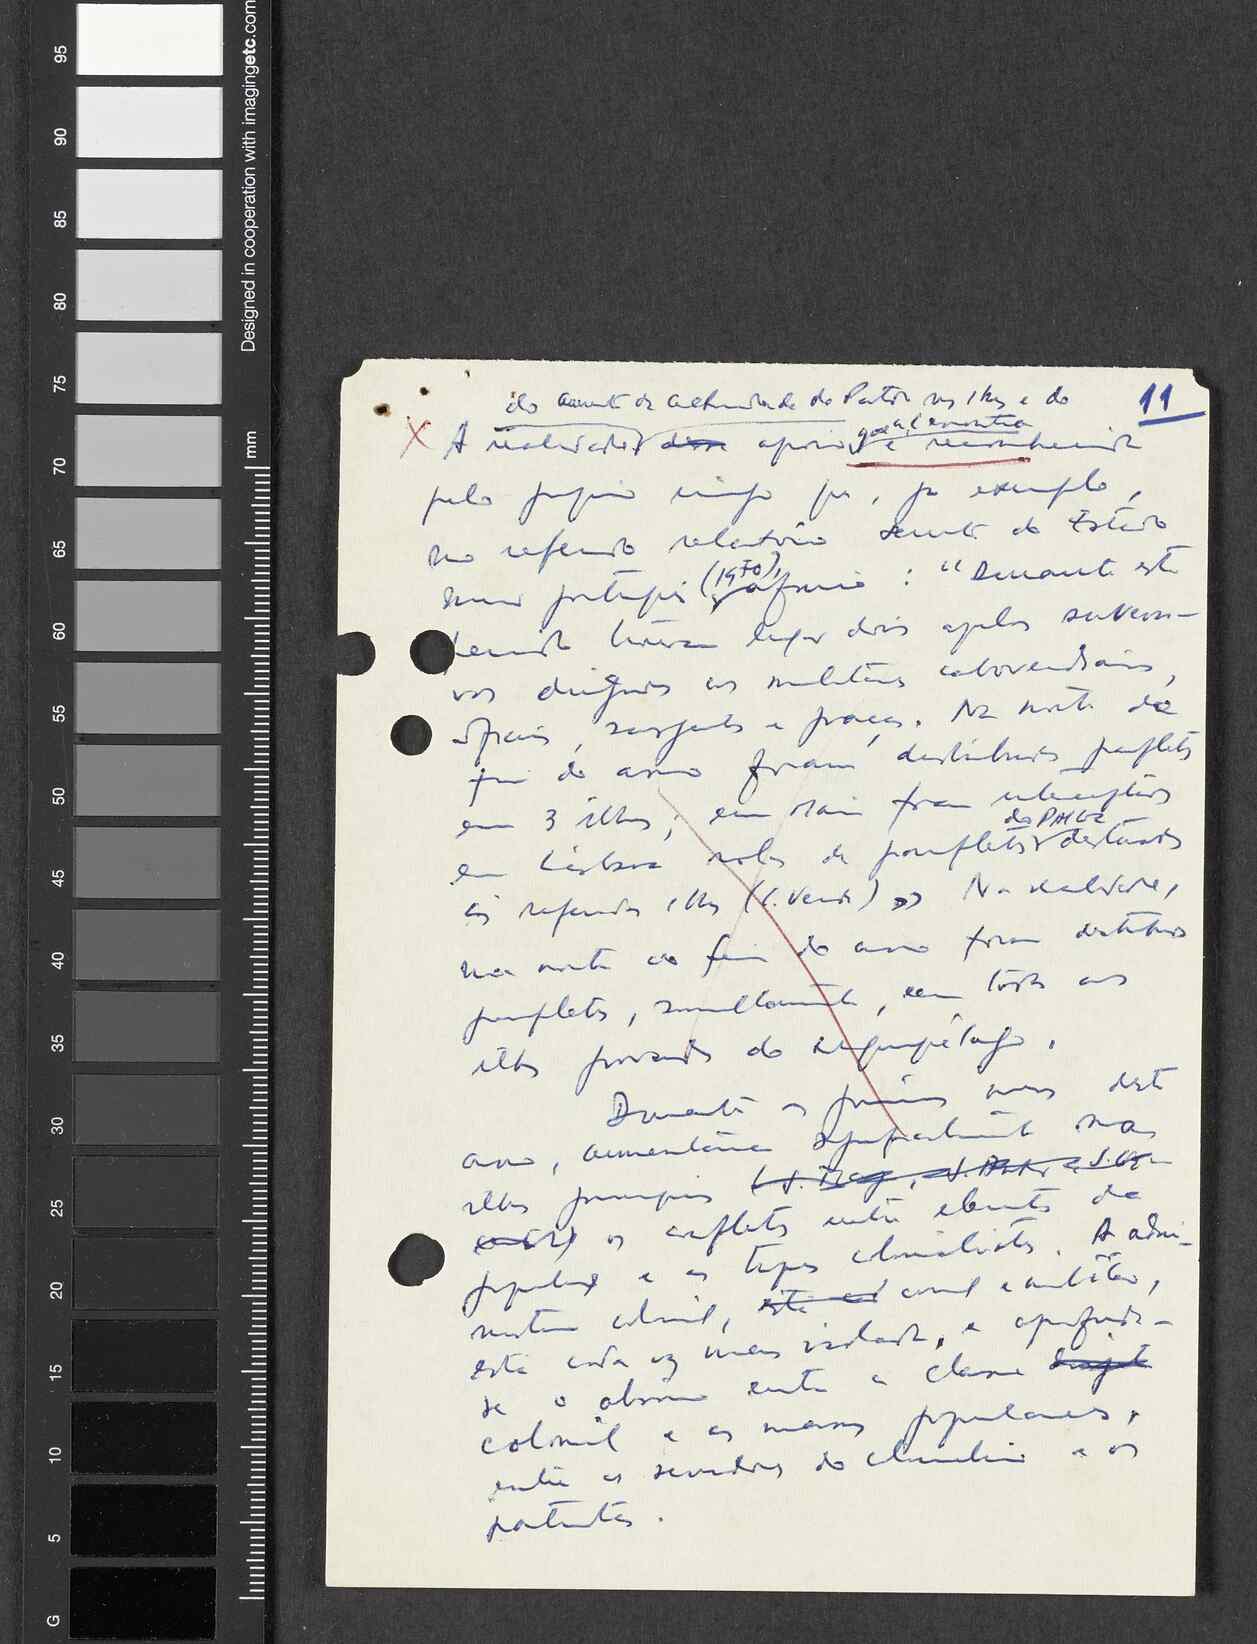 95
90
85
80
75
70
65
60
55
50
45
40
35
30
25
20
15
10
5
G
Designed in cooperation with imagingetc.com
mm
11
do aumento da actividade do Partido nas ilhas e do
X A realidade desse apoio que aí encontra é reconhecida
pelo próprio inimigo que, por exemplo,
no referido relatório secreto do Estado
maior português (1970), afirma : "Durante este
período tiveram lugar dois apelos subversi-
vos dirigidos aos militares caboverdianos,
oficiais, sargentos e praças. Na noite de
fim do ano foram distribuídos panfletos
em 3 ilhas; em Maio foram interceptados
em Lisboa rolos de panfletos do PAIGC destinados
às referidas ilhas (C. Verde)" Na realidade,
na noite do fim do ano foram distribuídos
panfletos, simultaneamente, em todas as
ilhas povoadas do arquipélago.
Durante os primeiros meses deste
ano, aumentaram significativamente nas
ilhas principais
os conflitos entre elementos da
população e as tropas colonialistas. A admi-
nistração colonial, civil e militar,
está cada vez mais isolada, e aprofunda-
se o abismo entre a classe
colonial e as massas populares,
entre os servidores do colonialismo e os
patriotas.